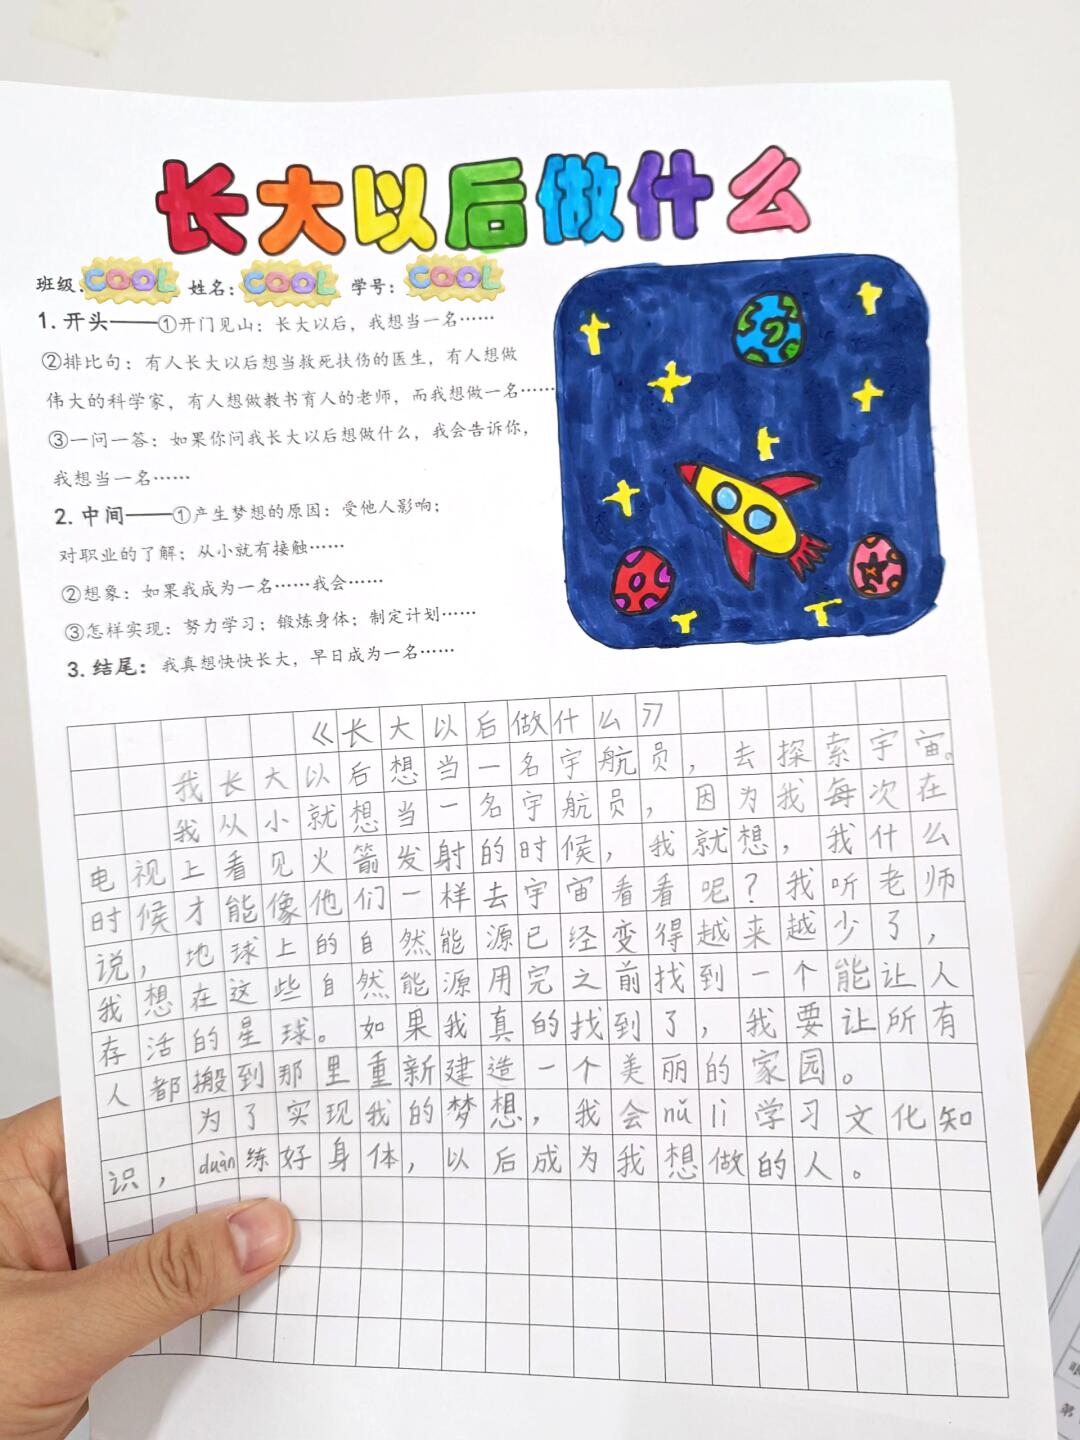 长大以后做什么
班级: COOL 姓名: COOL 学号: COOL
1. 开头——①开门见山：长大以后，我想当一名……
②排比句：有人长大以后想当救死扶伤的医生，有人想做
伟大的科学家，有人想做教书育人的老师，而我想做一名……
③一问一答：如果你问我长大以后想做什么，我会告诉你，
我想当一名……
2. 中间——①产生梦想的原因：受他人影响；
对职业的了解；从小就有接触……
②想象：如果我成为一名……我会……
③怎样实现：努力学习；锻炼身体；制定计划……
3. 结尾：我真想快快长大，早日成为一名……
《长大以后做什么》
我长大以后想当一名宇航员，去探索宇宙。
我从小就想当一名宇航员，因为我每次在
电视上看见火箭发射的时候，我就想，我什么
时候才能像他们一样去宇宙看看呢？我听老师
说，地球上的自然能源已经变得越来越少了，
我想在这些自然能源用完之前找到一个能让人
存活的星球。如果我真的找到了，我要让所有
人都搬到那里重新建造一个美丽的家园。
为了实现我的梦想，我会nǔ lì学习文化知
识，duàn练好身体，以后成为我想做的人。